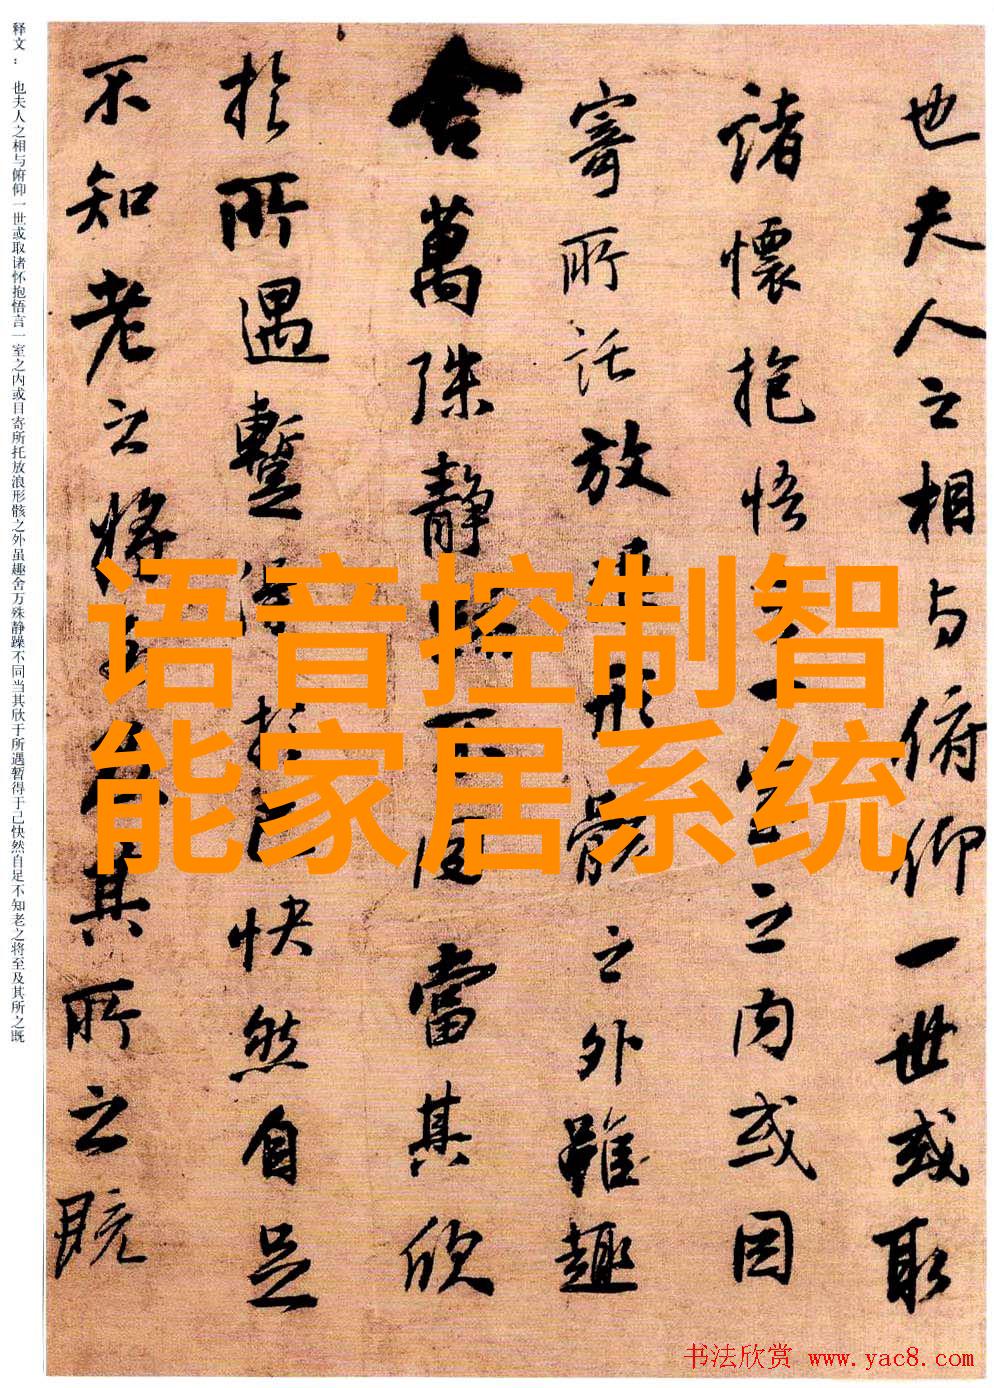 也夫人之相与俯仰一世或取
諸懷抱悟一室之内或因
寄所託放形骸之外雖趣
舍萬殊静不當其欣
於所遇蹔得於己快然自足
不知老之將至及其所之既
释文： 也夫人之相与俯仰一世或取诸怀抱悟言一室之内或目寄所托放浪形骸之外虽趣舍万殊静躁不同当其欣于所遇暂得于己快然自足不知老之将至及其所之既
语音控制智
能家居系统
书法欣赏 www.yac8.com